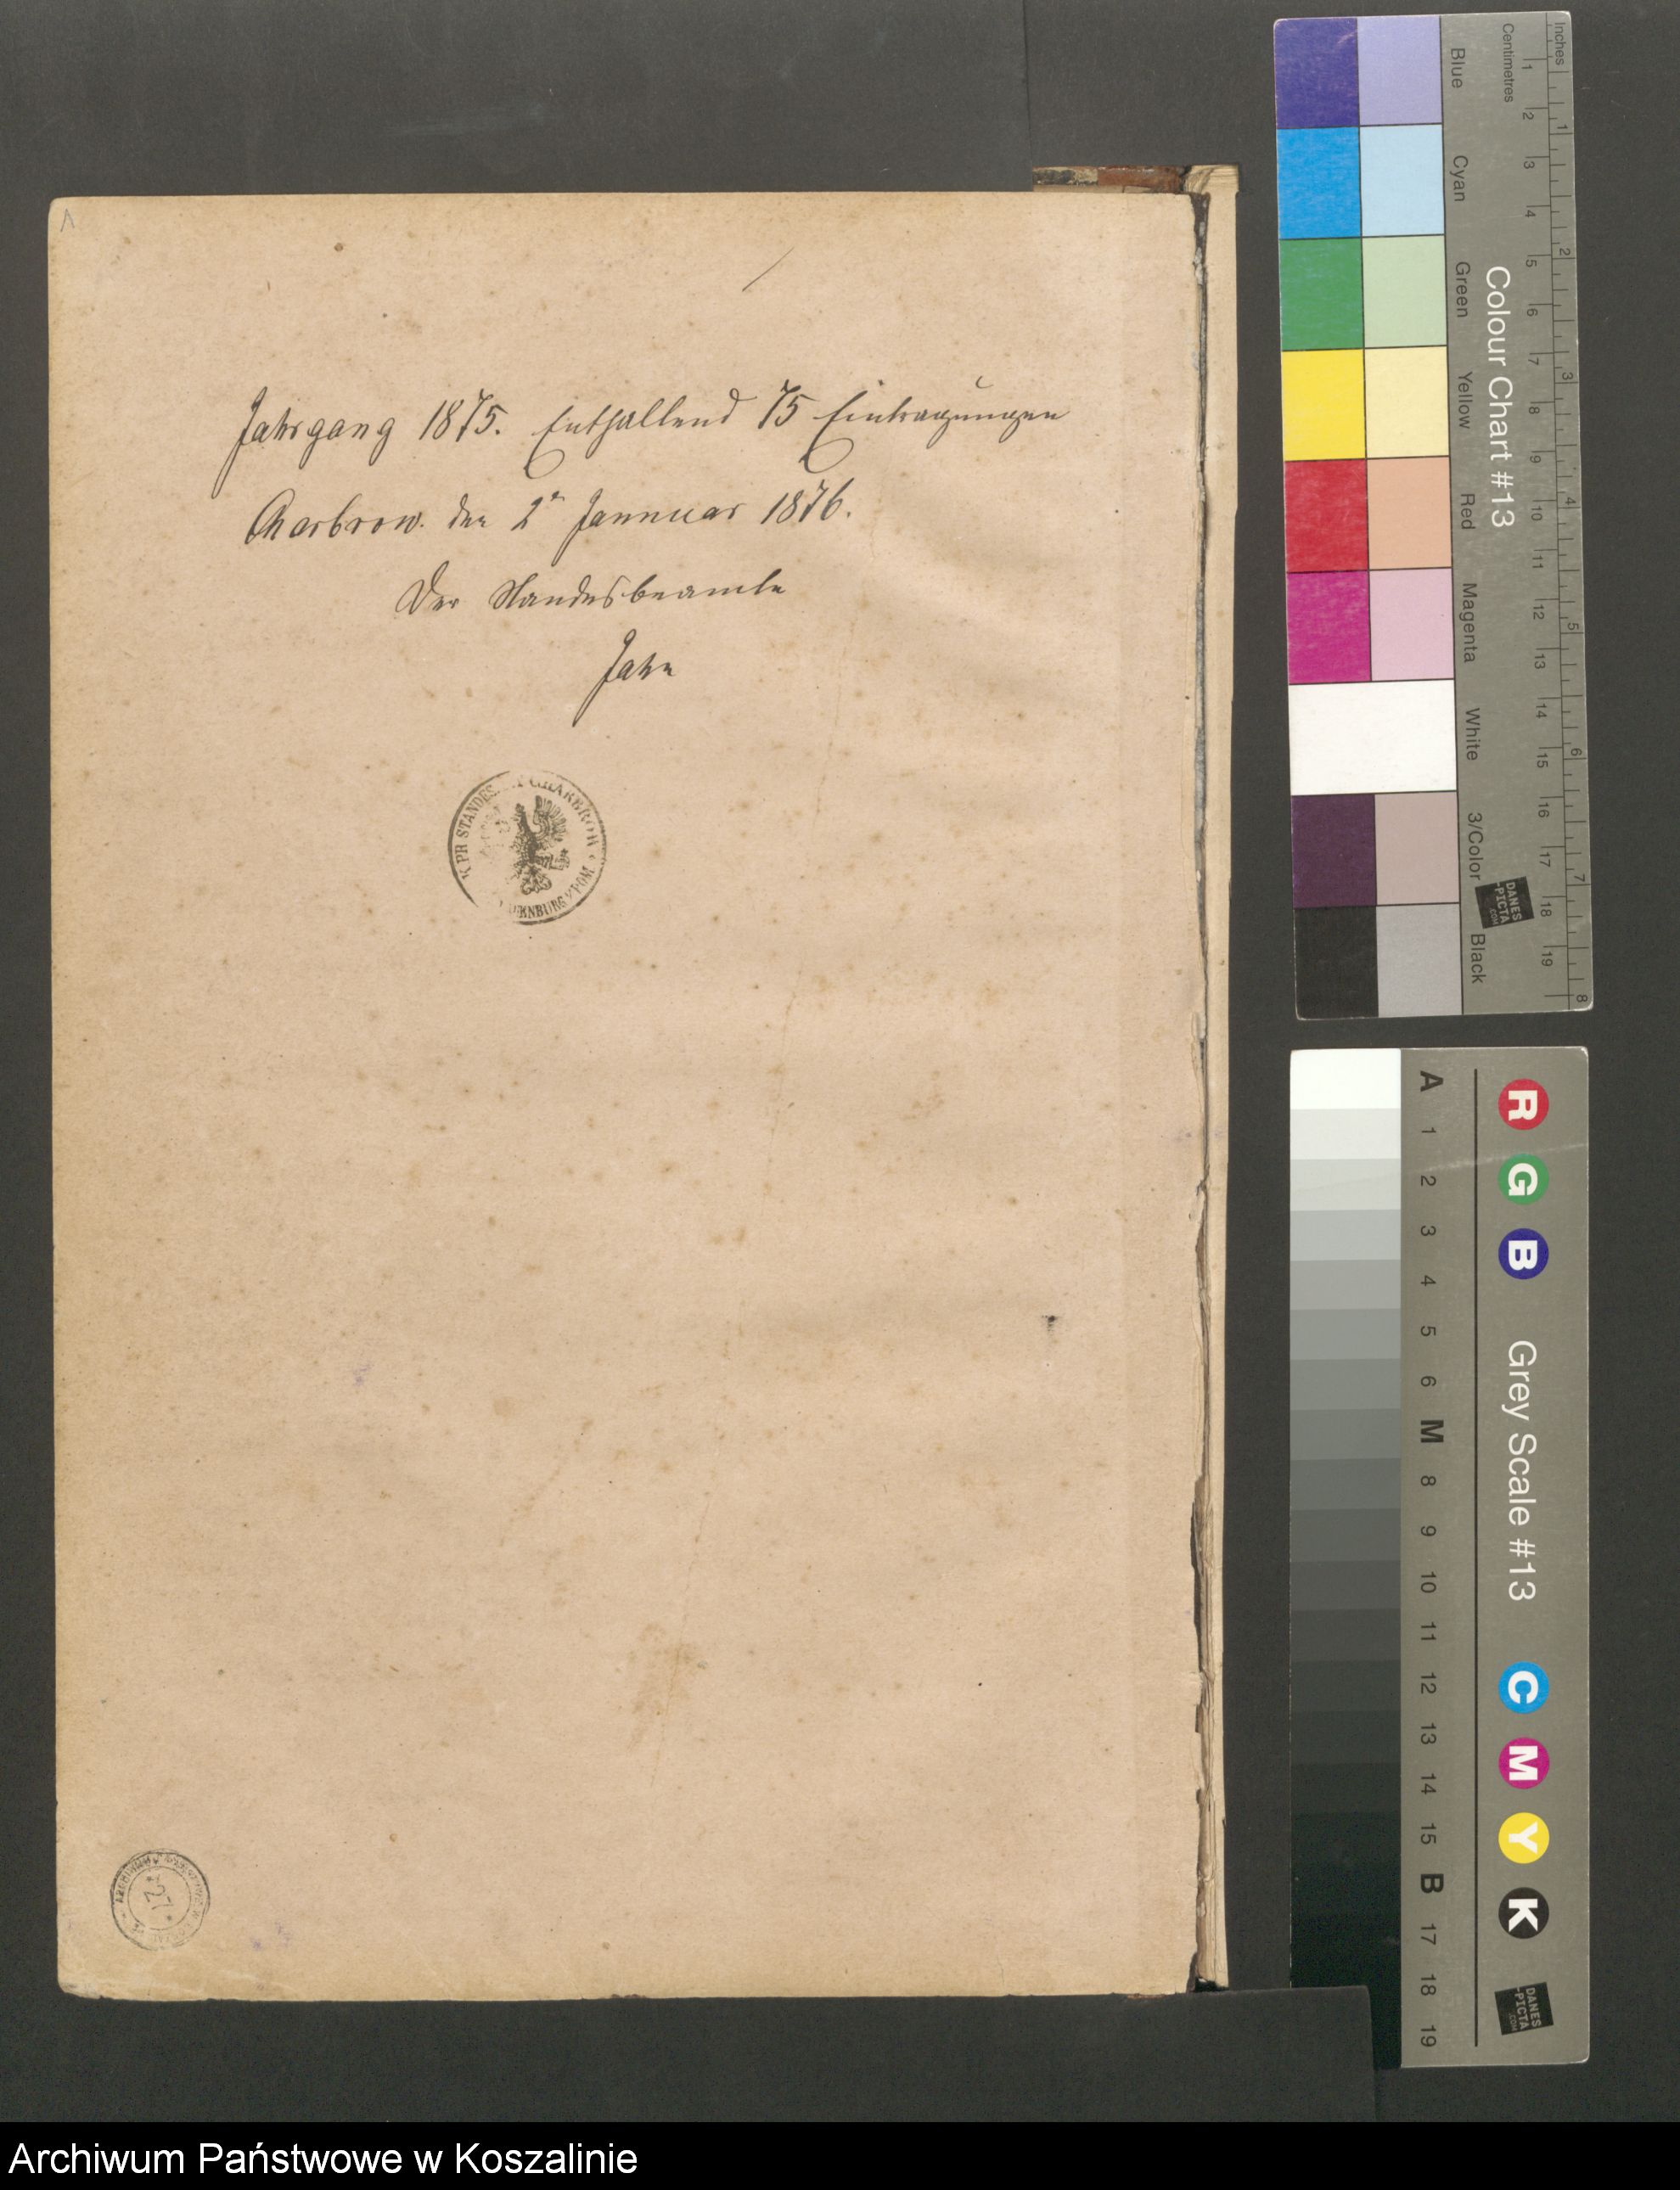 Jahrgang 1875. Enthaltend 75 Eintragungen
Charbrow. den 2n Jannuar 1876.
Der Standesbeamte
Jahn
K. PR STANDES T CHARBROW
ENBURG POM
27
Inches
Centimetres
1 2 3 4 5 6 7 8
1 2 3 4 5 6 7 8 9 10 11 12 13 14 15 16 17 18 19
Colour Chart #13
Blue Cyan Green Yellow Red Magenta White 3/Color Black
DANES
-PICTA
.COM
R G B Grey Scale #13 C M Y K
A 1 2 3 4 5 6 M 8 9 10 11 12 13 14 15 B 17 18 19
DANES
-PICTA
.COM
Archiwum Państwowe w Koszalinie